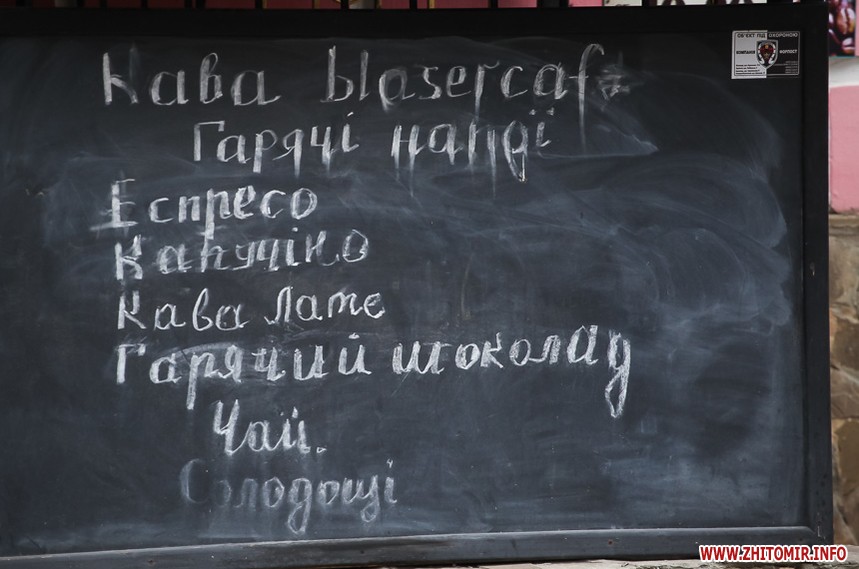 Кава blasercafé
Гарячі напої
Еспресо
Капучіно
Кава Лате
Гарячий шоколад
Чай.
Солодощі
ОБ'ЄКТ ПІД ОХОРОНОЮ
WWW.ZHITOMIR.INFO